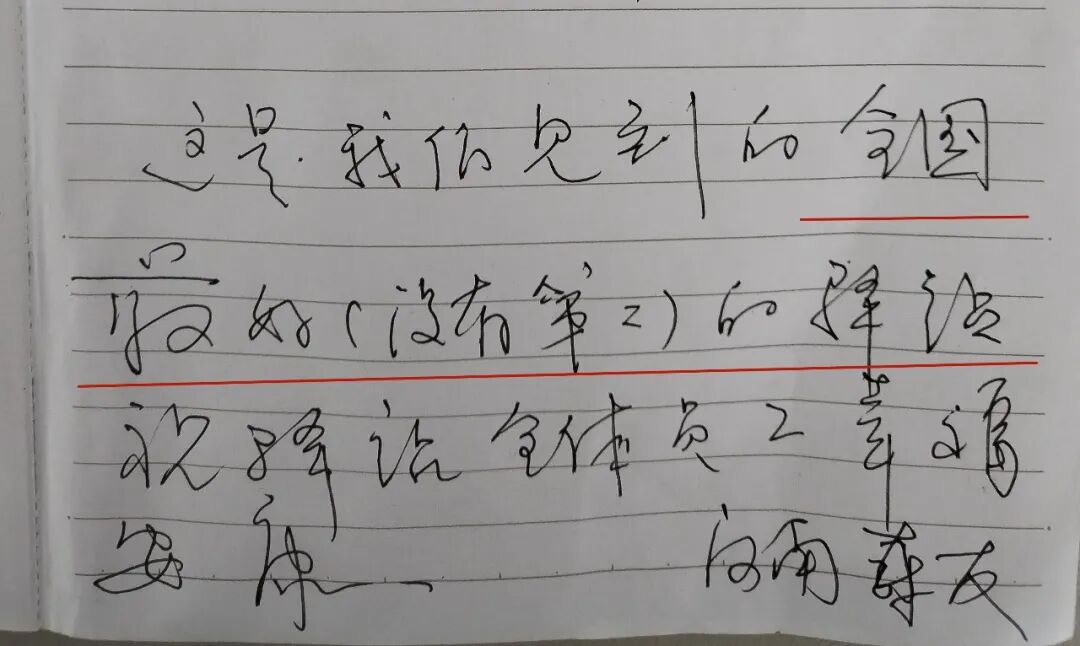 这是我们见到的全国
最好(没有第二)的驿站
祝驿站全体员工幸福
安康
河南蔡友